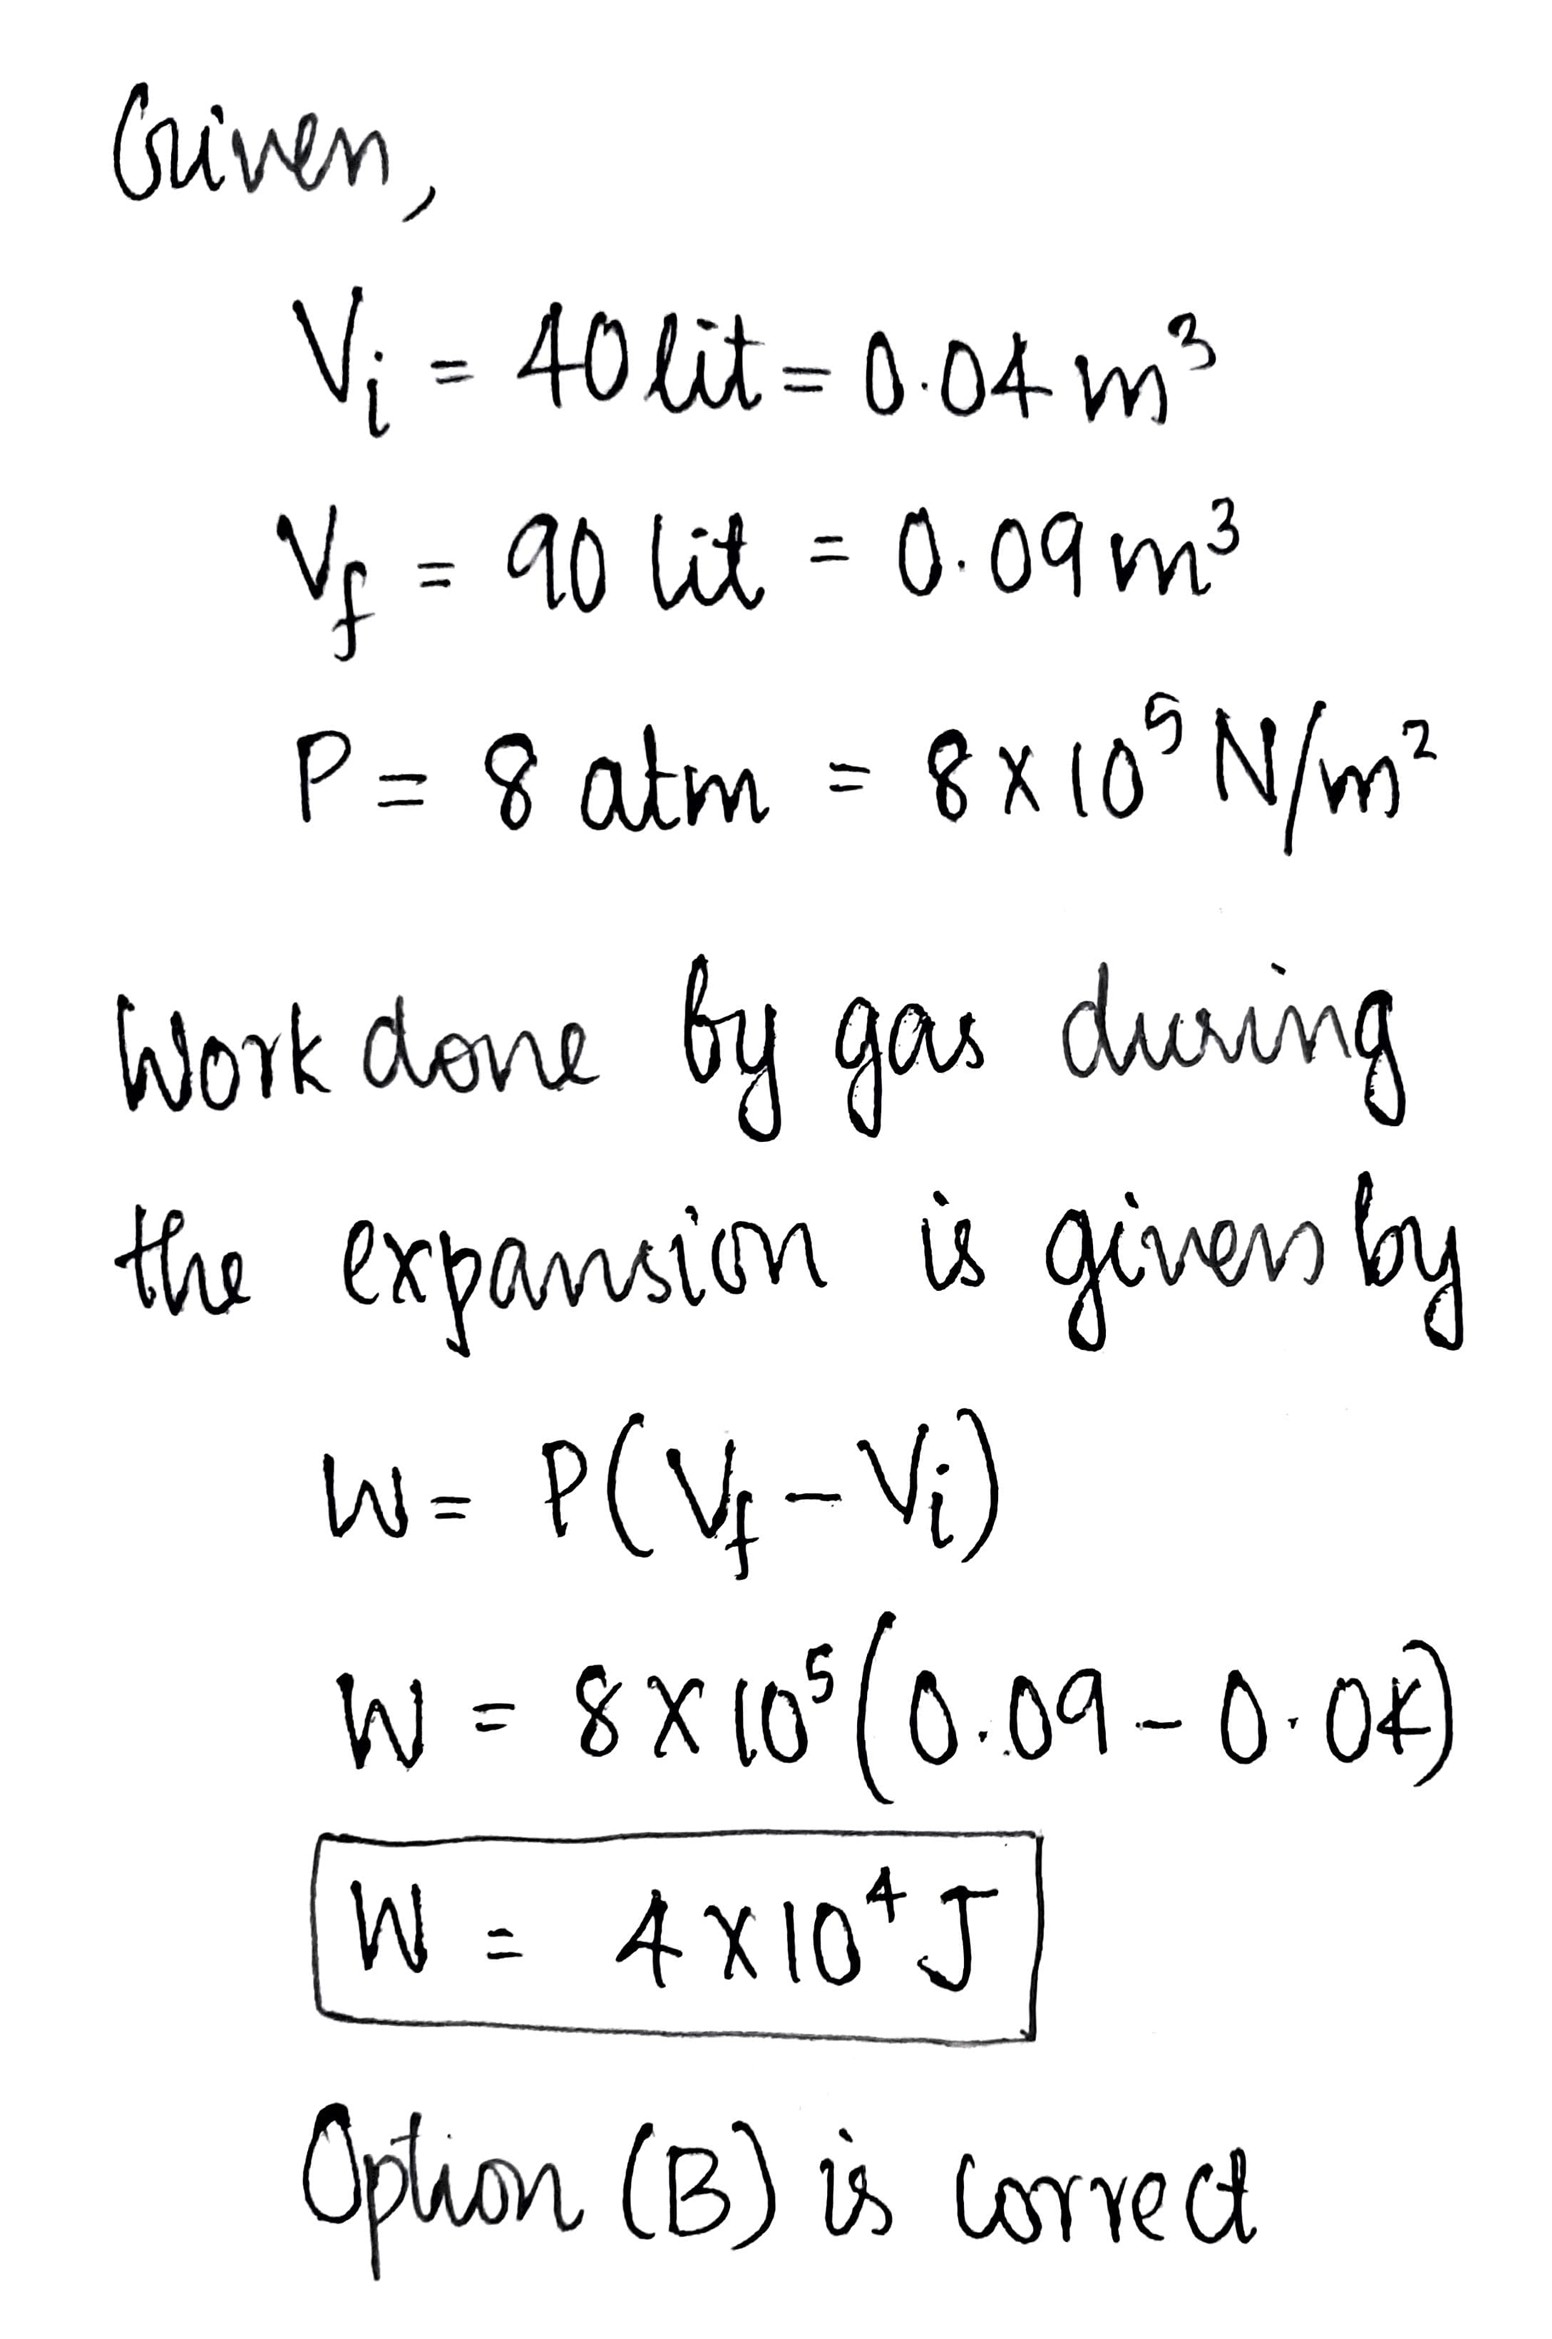 Given,
Vi = 40 lit = 0.04 m³
Vf = 90 lit = 0.09 m³
P = 8 atm = 8 × 10⁵ N/m²
Work done by gas during
the expansion is given by
W = P(Vf − Vi)
W = 8 × 10⁵ (0.09 − 0.04)
W = 4 × 10⁴ J
Option (B) is correct